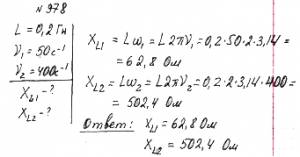 № 978
L = 0,2 Гн
ν₁ = 50 с⁻¹
ν₂ = 400 с⁻¹
X_L1 - ?
X_L2 - ?
X_L1 = Lω₁ = L2πν₁ = 0,2·50·2·3,14 =
= 62,8 Ом
X_L2 = Lω₂ = L2πν₂ = 0,2·2·3,14·400 =
= 502,4 Ом
Ответ: X_L1 = 62,8 Ом
X_L2 = 502,4 Ом